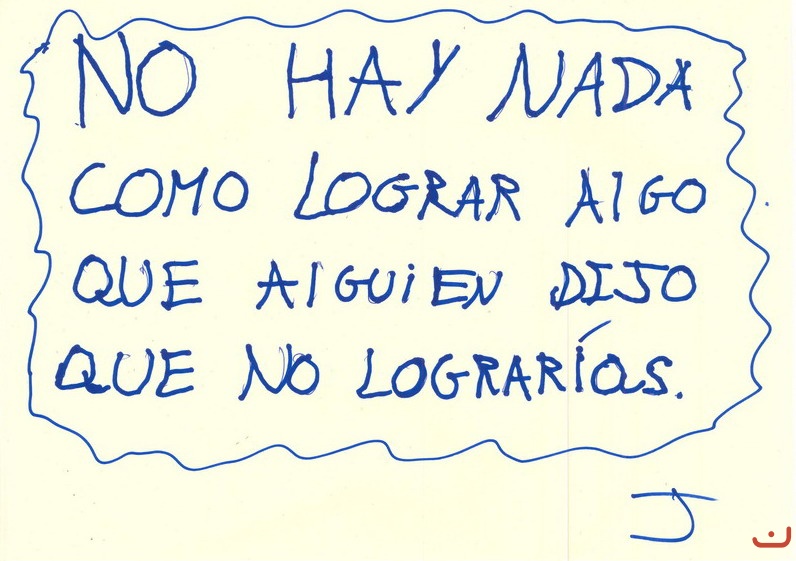 NO HAY NADA
COMO LOGRAR AlGO
QUE AlGUiEN DIJO
QUE NO LOGRARÍas.
J